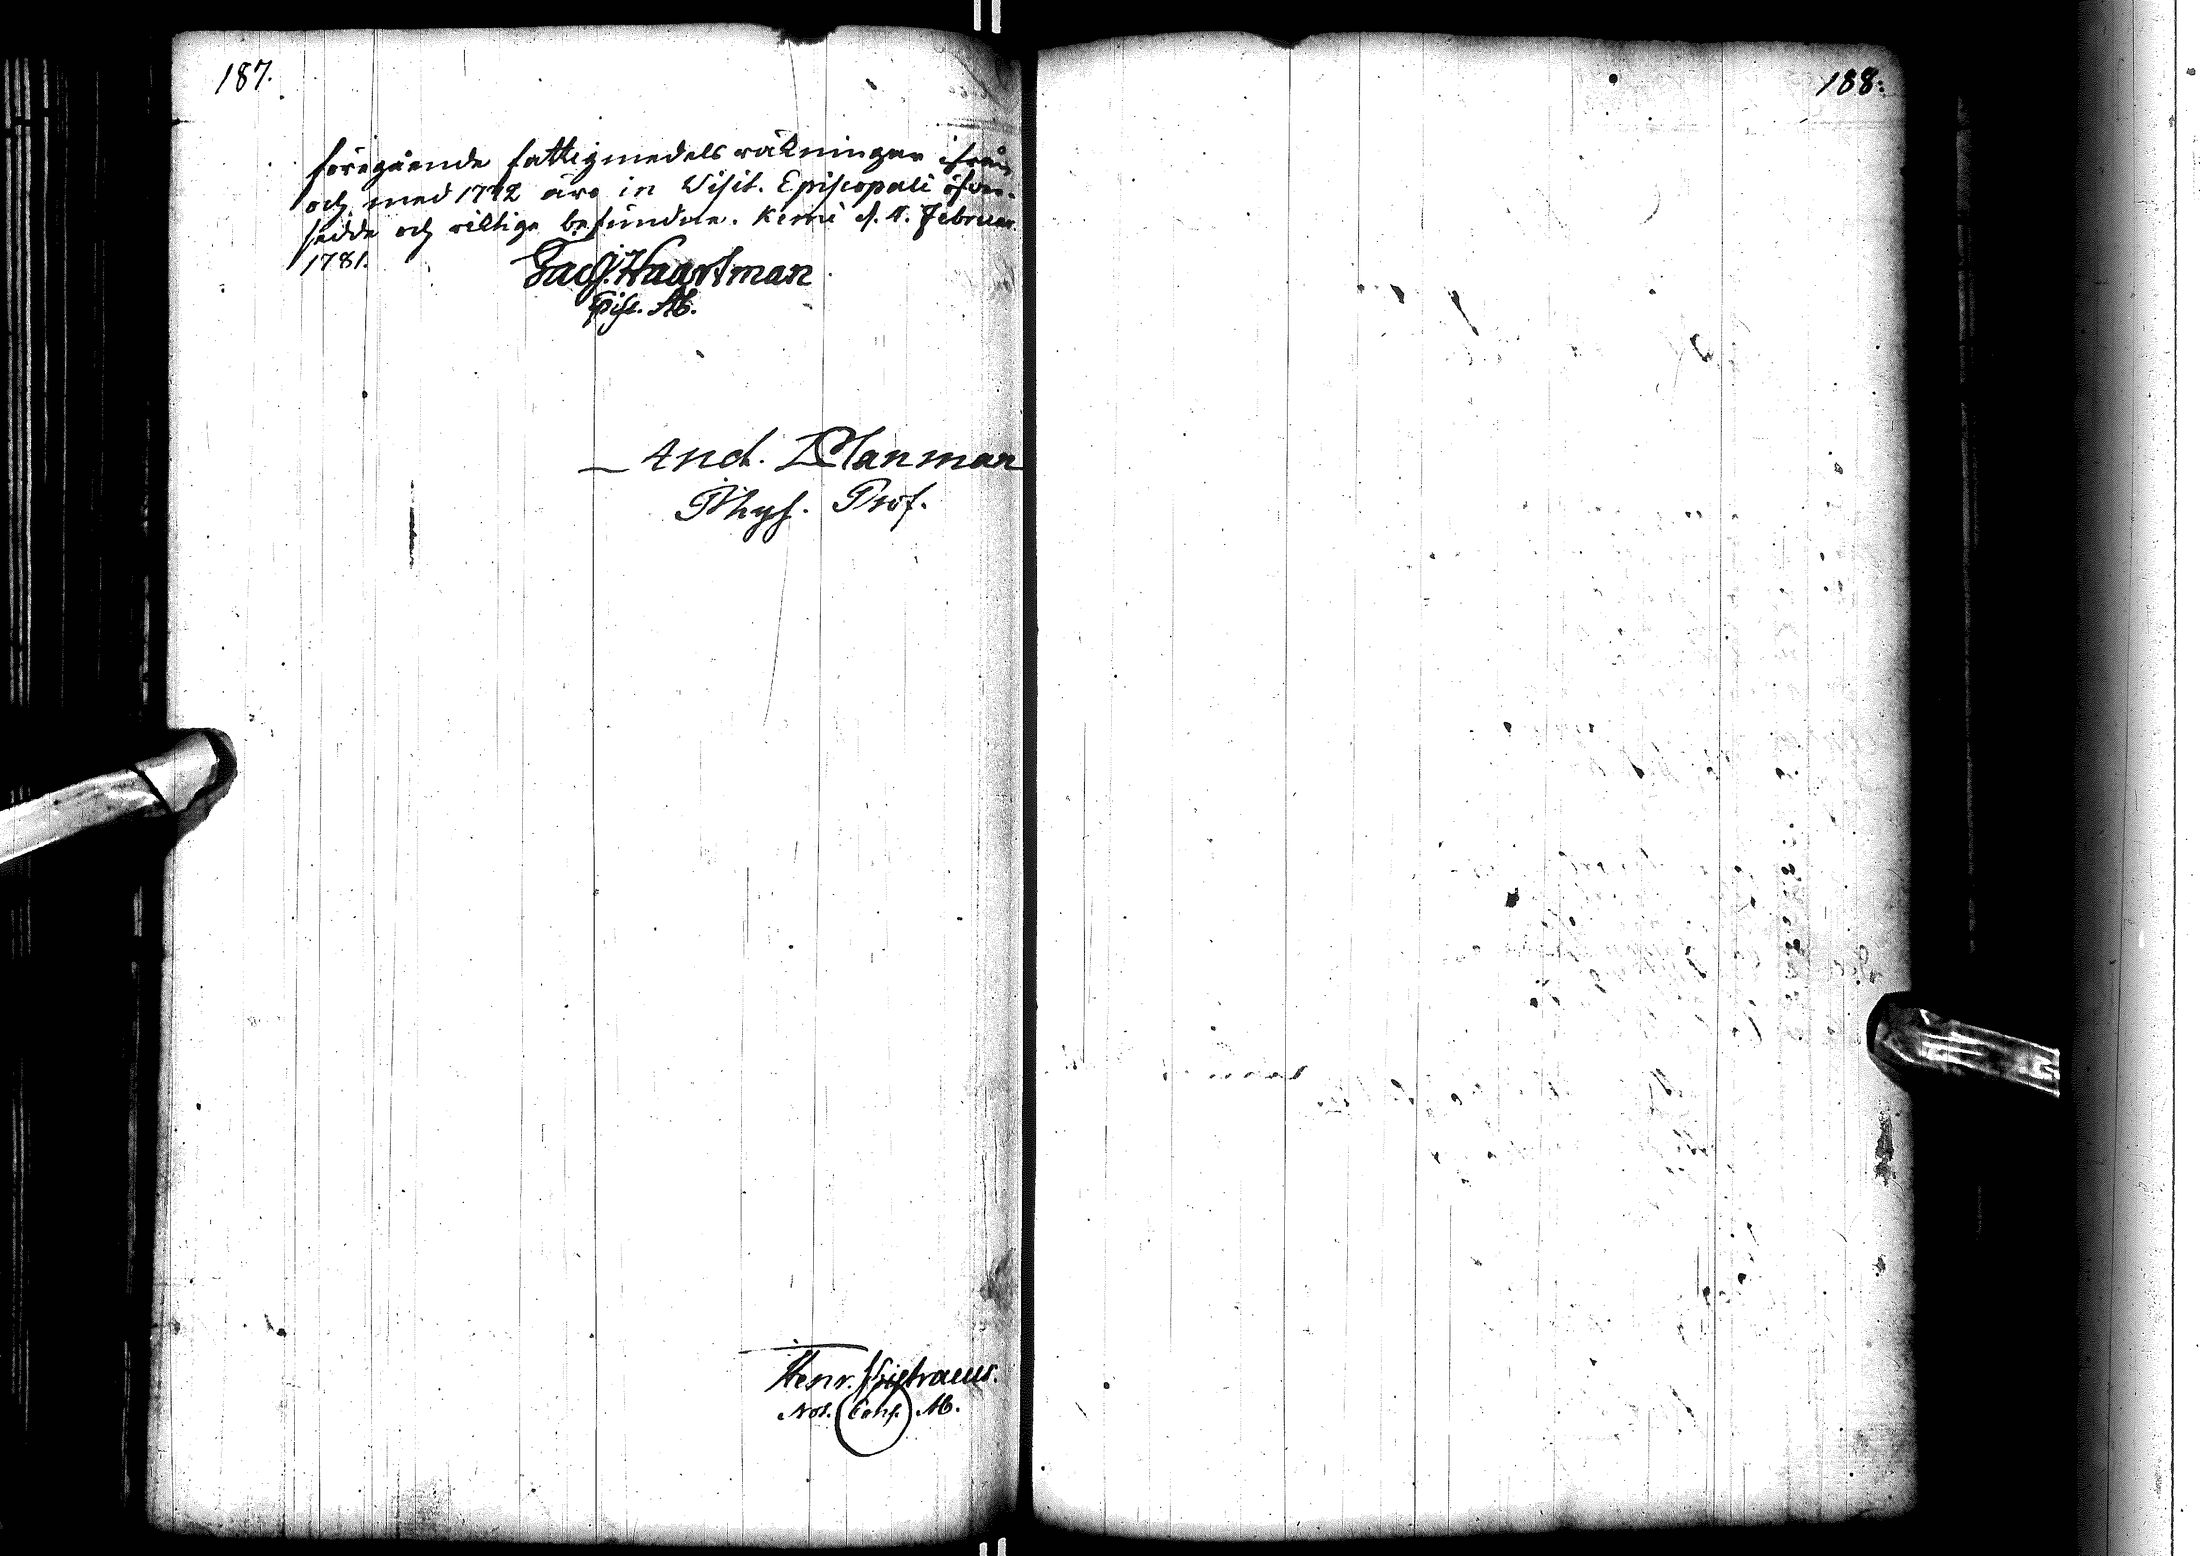 187.
föregående fattigmedels räkningar ifrån
och med 1772 äro in Visit. Episcopali öfver-
sedde och riktige befundne. Kemi d. Februar
1781.
Jac. Haartman
Episc. Ab.
And. Planman
Phys. Prof.
Henr.
Not. Cons. Ab.
188: